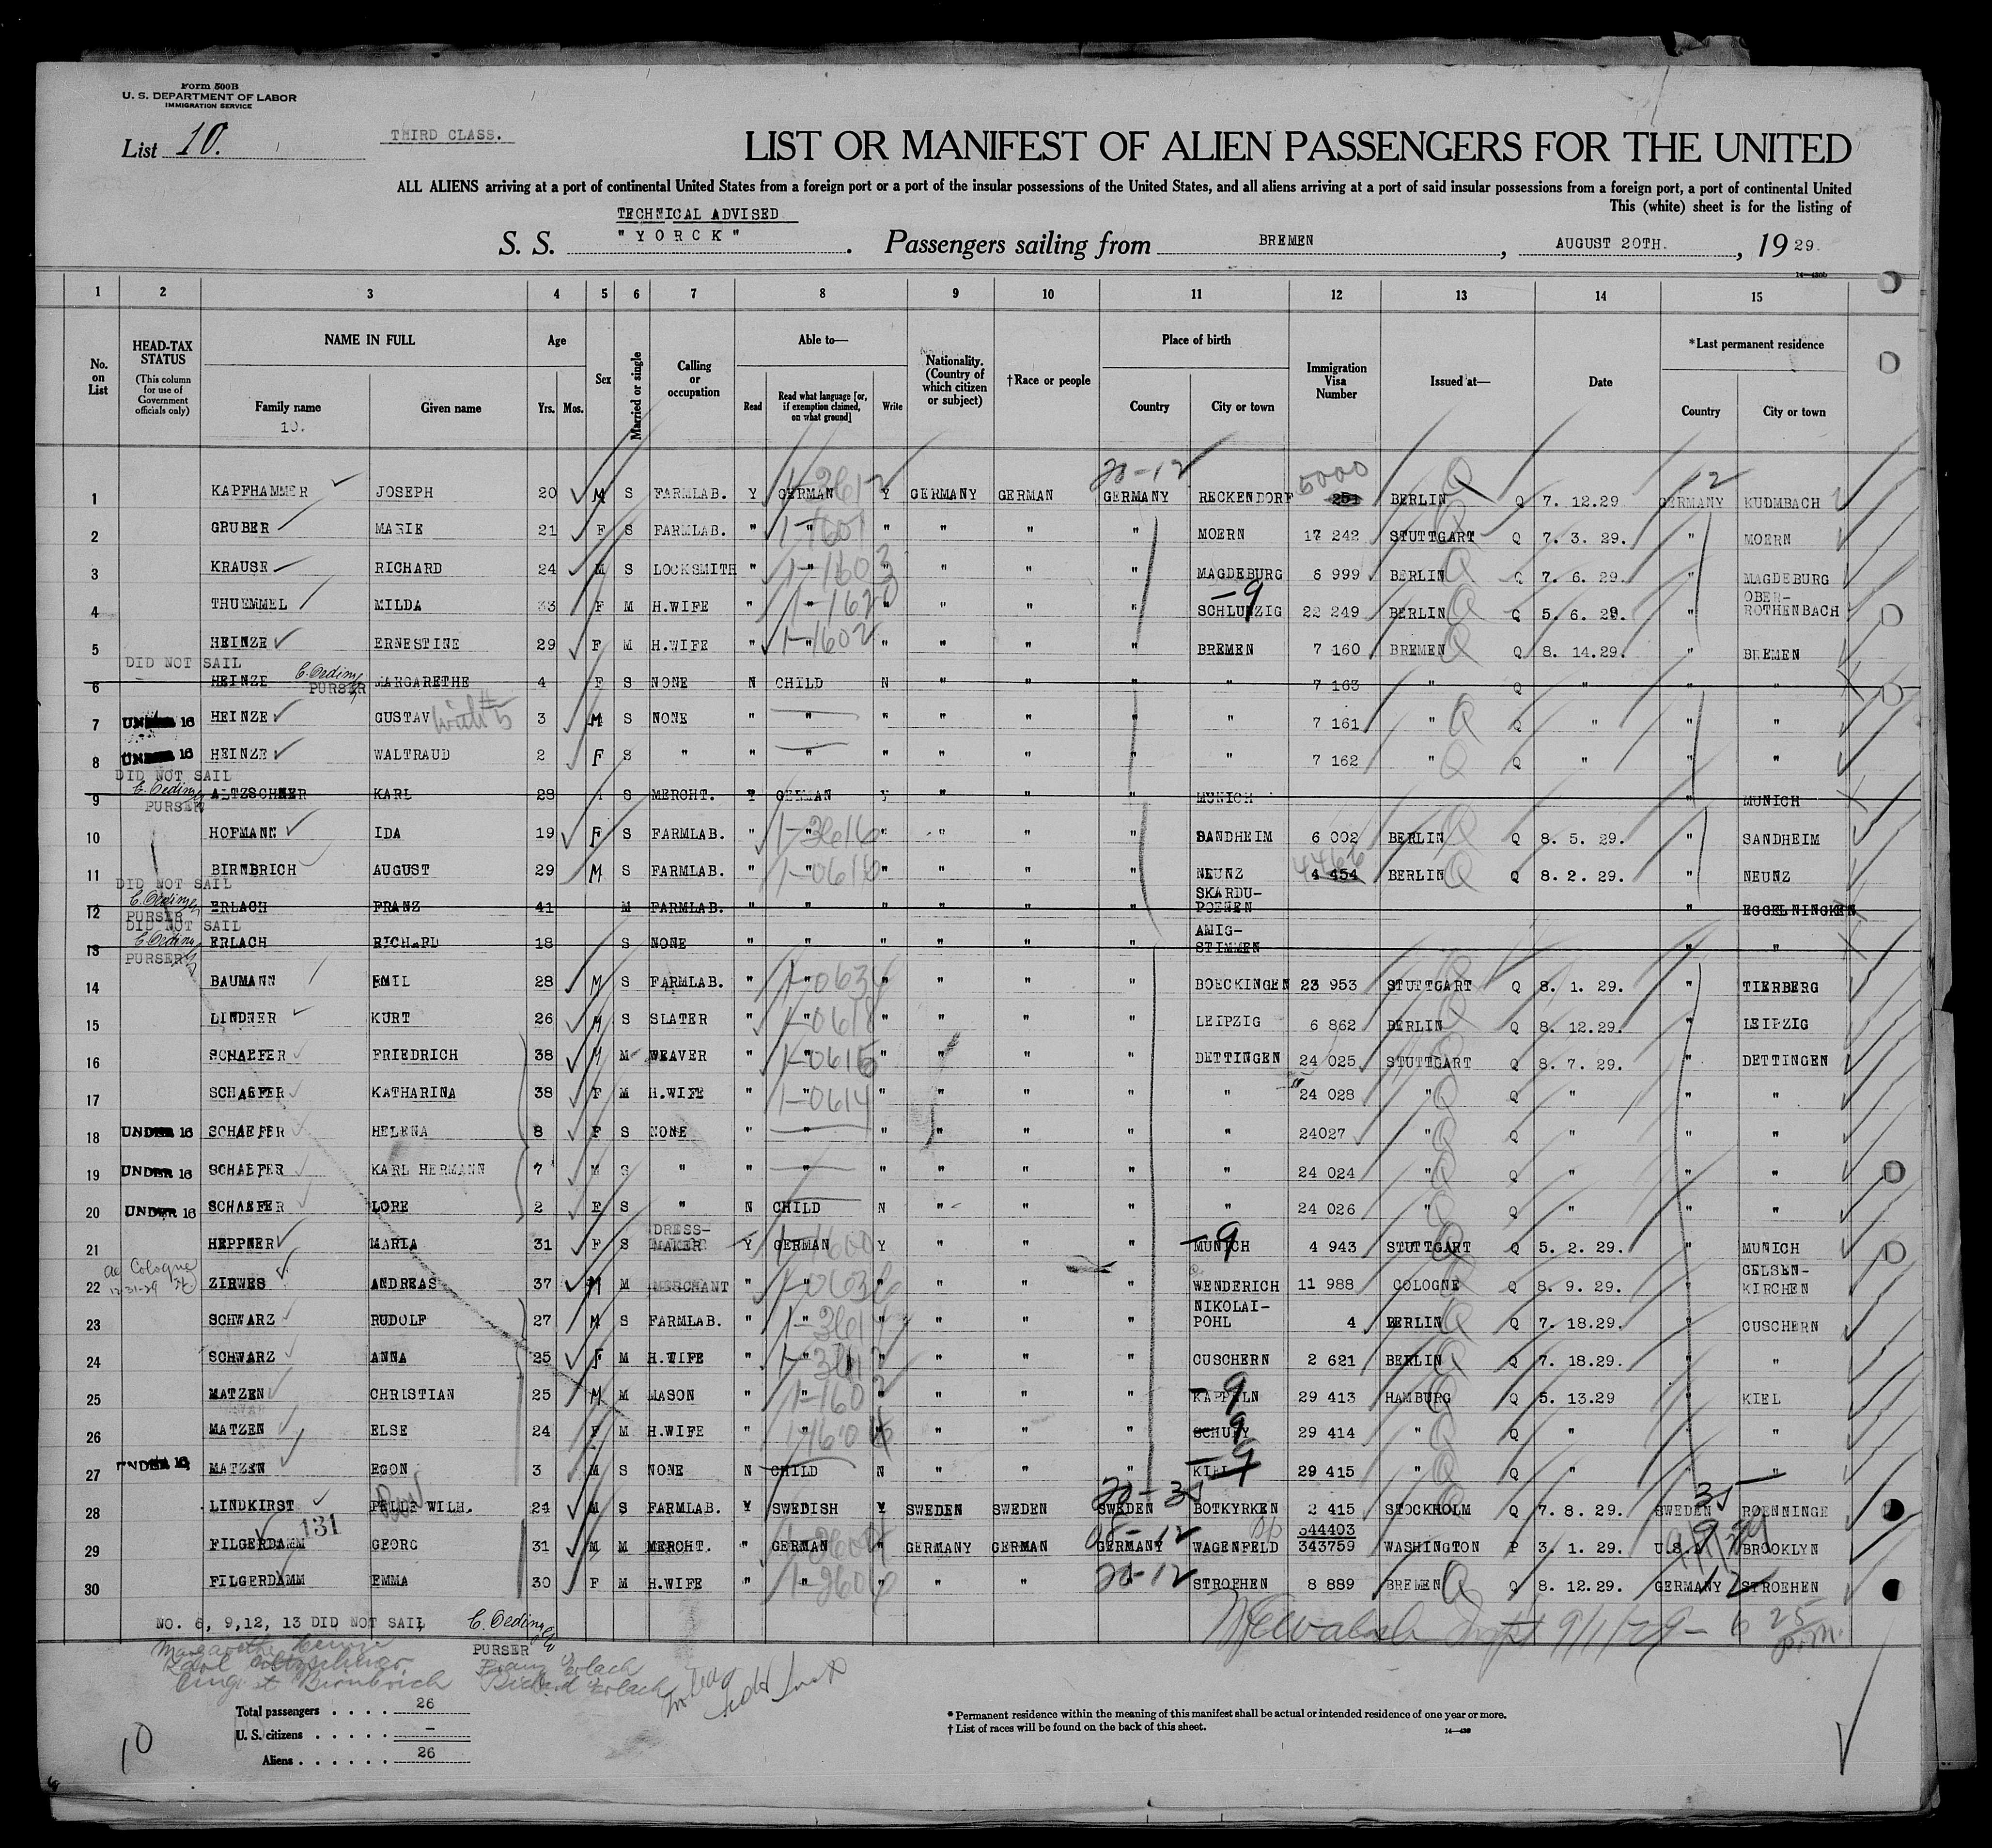 Form 500B
U. S. DEPARTMENT OF LABOR
IMMIGRATION SERVICE
List 10.
THIRD CLASS.
LIST OR MANIFEST OF ALIEN PASSENGERS FOR THE UNITED
ALL ALIENS arriving at a port of continental United States from a foreign port or a port of the insular possessions of the United States, and all aliens arriving at a port of said insular possessions from a foreign port, a port of continental United
This (white) sheet is for the listing of
TECHNICAL ADVISED
S. S. "YORCK". Passengers sailing from BREMEN, AUGUST 20TH., 1929.
1 2 3 4 5 6 7 8 9 10 11 12 13 14 15
No. on List
HEAD-TAX STATUS (This column for use of Government officials only)
NAME IN FULL
Family name
10.
Given name
Age
Yrs. Mos.
Sex
Married or single
Calling or occupation
Able to—
Read
Read what language [or, if exemption claimed, on what ground]
Write
Nationality. (Country of which citizen or subject)
†Race or people
Place of birth
Country
City or town
Immigration Visa Number
Issued at—
Date
*Last permanent residence
Country
City or town
20-12 5000 12
1 KAPFHAMMER JOSEPH 20 M S FARMLAB. Y GERMAN Y GERMANY GERMAN GERMANY RECKENDORF 251 BERLIN Q 7. 12.29 GERMANY KUDMBACH
2 GRUBER MARIE 21 F S FARMLAB. " " " " " " MOERN 17 242 STUTTGART Q 7. 3. 29. " MOERN
3 KRAUSE RICHARD 24 M S LOCKSMITH " " " " " " MAGDEBURG 6 999 BERLIN Q 7. 6. 29. " MAGDEBURG
4 THUEMMEL MILDA 33 F M H.WIFE " " " " " " SCHLUNZIG 22 249 BERLIN Q 5. 6. 29. " OBER-ROTHENBACH
5 HEINZE ERNESTINE 29 F M H.WIFE " " " " " " BREMEN 7 160 BREMEN Q 8. 14.29. " BREMEN
DID NOT SAIL C. Oeding PURSER
6 HEINZE MARGARETHE 4 F S NONE N CHILD N " " " " 7 163 " Q " " "
7 UNDER 16 HEINZE GUSTAV with #5 3 M S NONE " " " " " " " 7 161 " Q " " "
8 UNDER 16 HEINZE WALTRAUD 2 F S " " " " " " " " 7 162 " Q " " "
DID NOT SAIL C. Oeding PURSER
9 ALTZSCHNER KARL 28 S MERCHT. Y GERMAN Y " " " MUNICH " MUNICH
10 HOFMANN IDA 19 F S FARMLAB. " " " " " " SANDHEIM 6 002 BERLIN Q 8. 5. 29. " SANDHEIM
11 BIRNBRICH AUGUST 29 M S FARMLAB. " " " " " " NEUNZ 4 454 BERLIN Q 8. 2. 29. " NEUNZ
DID NOT SAIL C. Oeding PURSER
12 ERLACH FRANZ 41 M FARMLAB. " " " " " " SKARDU-POENEN " EGGELNINGKEN
DID NOT SAIL C. Oeding PURSER
13 ERLACH RICHARD 18 S NONE " " " " " " AMIG-STIMMEN " "
14 BAUMANN EMIL 28 M S FARMLAB. " " " " " " BOECKINGEN 23 953 STUTTGART Q 8. 1. 29. " TIERBERG
15 LINDNER KURT 26 M S SLATER " " " " " " LEIPZIG 6 862 BERLIN Q 8. 12.29. " LEIPZIG
16 SCHAEFER FRIEDRICH 38 M M WEAVER " " " " " " DETTINGEN 24 025 STUTTGART Q 8. 7. 29. " DETTINGEN
17 SCHAEFER KATHARINA 38 F M H.WIFE " " " " " " " 24 028 " Q " " "
18 UNDER 16 SCHAEFER HELENA 8 F S NONE " " " " " " " 24027 " Q " " "
19 UNDER 16 SCHAEFER KARL HERMANN 7 M S " " " " " " " " 24 024 " Q " " "
20 UNDER 16 SCHAEFER LORE 2 F S " N CHILD N " " " " 24 026 " Q " " "
21 HEPPNER MARIA 31 F S DRESS-MAKER Y GERMAN Y " " " MUNICH 4 943 STUTTGART Q 5. 2. 29. " MUNICH
22 Cologne 12-31-29 ZIRWES ANDREAS 37 M M MERCHANT " " " " " " WENDERICH 11 988 COLOGNE Q 8. 9. 29. GELSEN-KIRCHEN
23 SCHWARZ RUDOLF 27 M S FARMLAB. " " " " " " NIKOLAI-POHL 4 BERLIN Q 7. 18.29. " CUSCHERN
24 SCHWARZ ANNA 25 F M H.WIFE " " " " " " CUSCHERN 2 621 BERLIN Q 7. 18.29. " "
25 MATZEN CHRISTIAN 25 M M MASON " " " " " " KAPPELN 29 413 HAMBURG Q 5. 13.29 " KIEL
26 MATZEN ELSE 24 F M H.WIFE " " " " " " SCHUBY 29 414 " Q " " "
27 UNDER 16 MATZEN EGON 3 M S NONE N CHILD N " " " KIEL 29 415 " Q " " "
28 LINDKIRST PELLE WILH. 24 M S FARMLAB. Y SWEDISH Y SWEDEN SWEDEN SWEDEN BOTKYRKEN 2 415 STOCKHOLM Q 7. 8. 29. SWEDEN ROENNINGE
131 544403
29 FILGERDAMM GEORG 31 M M MERCHT. " GERMAN " GERMANY GERMAN GERMANY WAGENFELD 343759 WASHINGTON P 3. 1. 29. U.S.A. BROOKLYN
30 FILGERDAMM EMMA 30 F M H.WIFE " " " " " 20-12 STROEHEN 8 889 BREMEN Q 8. 12.29. GERMANY STROEHEN
NO. 6, 9,12, 13 DID NOT SAIL C. Oeding
PURSER
9/1/29 - 6 25 p.m.
Margarethe Heinze Franz Erlach
August Birnbrich Richard Erlach
Total passengers . . . . 26
U. S. citizens . . . . . –
Aliens . . . . . . 26
10
* Permanent residence within the meaning of this manifest shall be actual or intended residence of one year or more.
† List of races will be found on the back of this sheet.